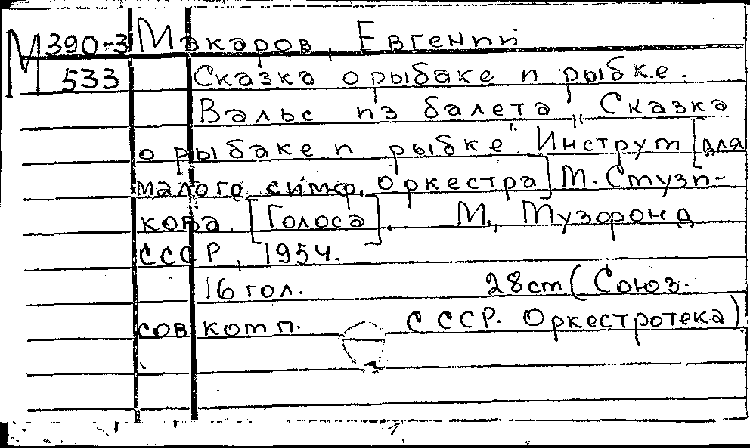 М 390-3 Макаров, Евгений
М 533 Сказка о рыбаке и рыбке.
Вальс из балета „Сказка
о рыбаке и рыбке". Инструт [для
малого симф. оркестра] М. Стузи-
кова. [Голоса]. М., Музфонд
СССР, 1954.
16 гол. 28cm (Союз.
сов комп. СССР. Оркестротека)